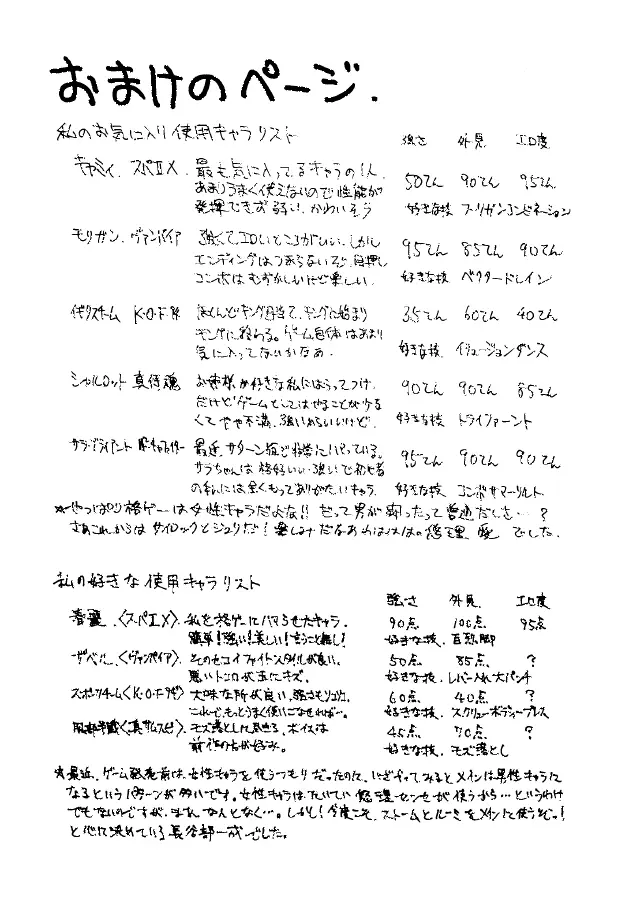 おまけのページ.
私のお気に入り使用キャラリスト 強さ 外見 エロ度
キャミィ. スパⅡX. 最も気に入ってるキャラの1人
あまりうまく使えないので性能が 50てん 90てん 95てん
発揮できず弱い. かわいそう 好きな技 フーリガンコンビネーション
モリガン. ヴァンパイア 強くてエロいところがいい. しかし 95てん 85てん 90てん
エンディングはつまらないぞ. 目押し
コンボはむずかしいけど楽しい. 好きな技 ベクタードレイン
イギリスチーム K·O·F ほとんどキング目当て. キングに始まり 35てん 60てん 40てん
キングに終わる。ゲーム自体はあまり
気に入ってないかなあ. 好きな技. イリュージョンダンス
シャルロット 真侍魂 お姫様が好きな私にはうってつけ. 90てん 90てん 85てん
だけどゲームとしてはやることが少な
くてやや不満. 強いからいいけど. 好きな技 トライファーント
サラ·ブライアント 最近、サターン版で非常にハマっている。 95てん 90てん 90てん
サラちゃんは格好いい·強いで初心者
の私には全くもってありがたいキャラ. 好きな技 コンボサマーソルト
☆やっぱり格ゲーは女性キャラだよな!! だって男が闘ったって普通だしさ…?
さあこれからはサイロックとジュリだ! 楽しみだなあわはははの悠理 愛 でした.
私の好きな使用キャラリスト 強さ 外見. エロ度
春麗.〈スパⅡX〉. 私を格ゲーにハマらせたキャラ. 90点 100点 95点
簡単!強い!美しい!言うこと無し! 好きな技. 百烈脚
ザベル.〈ヴァンパイア〉. そのセコイファイトスタイルが良い. 50点 85点. ?
悪いトコロが玉にキズ. 好きな技. レバー入れ大パンチ
スポーツチーム〈K·O·F〉. 大味な所が良い. 60点 40点 ?
これで、もっとうまく使いこなせれば…. 好きな技. スクリューボディープレス
風間〈真サムスピ〉. モズ落としに尽きる. ボイスは 45点 70点. ?
前作の方が好み. 好きな技 モズ落とし
☆最近、ゲーム発売前は女性キャラを使うつもりだったのに、いざやってみるとメインは男性キャラに
なるというパターンが多いです。女性キャラはたいてい悠理センセが使うから…というわけ
でもないのですが、まぁ、なんとなく…。しかし! 今度こそ、ストームとルーミをメインに使うぞっ!
と心に決めている長谷部一成でした。